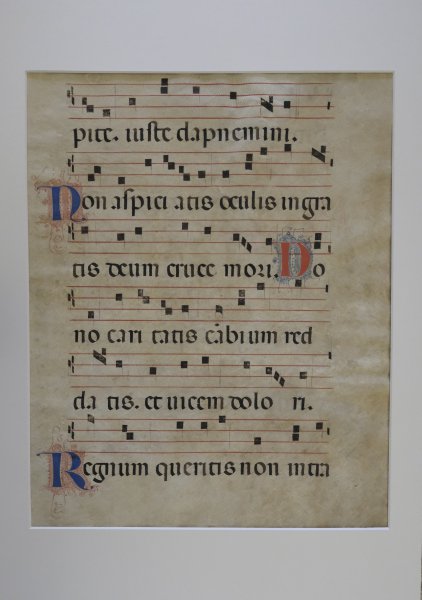 pite. iuste dapnemini.
Non aspici atis oculis ingra
tis deum cruce mori. Do
no cari tatis cābium red
da tis. et vicem dolo ri.
Regnum queritis non intra